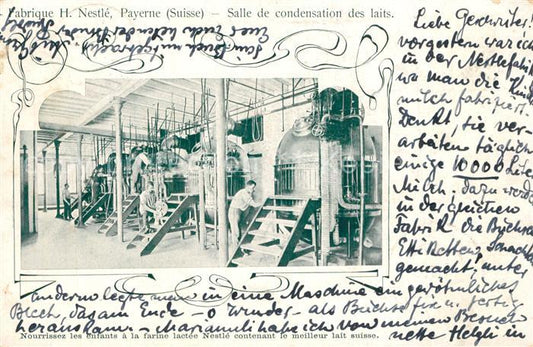 Fabrique H. Nestlé, Payerne (Suisse) — Salle de condensation des laits.
Liebe Geschwister!
vorgestern war ich
in der Nestléfabrik
wo man die Kinder
milch fabriziert.
Denkt, sie ver-
arbeiten täglich
einige 10000 Liter
Milch. dazu werden
in der gleichen
Fabrik die Büchsen
Etiketten, Schachteln
gemacht, unter
anderm legte man in eine Maschine ein gewöhnliches
Blech, das am Ende — o wunder — als Büchse fix u. fertig
herauskam. — habe ich von meinem Besuch
nette Helgli in
Nourrissez les enfants à la farine lactée Nestlé contenant le meilleur lait suisse.